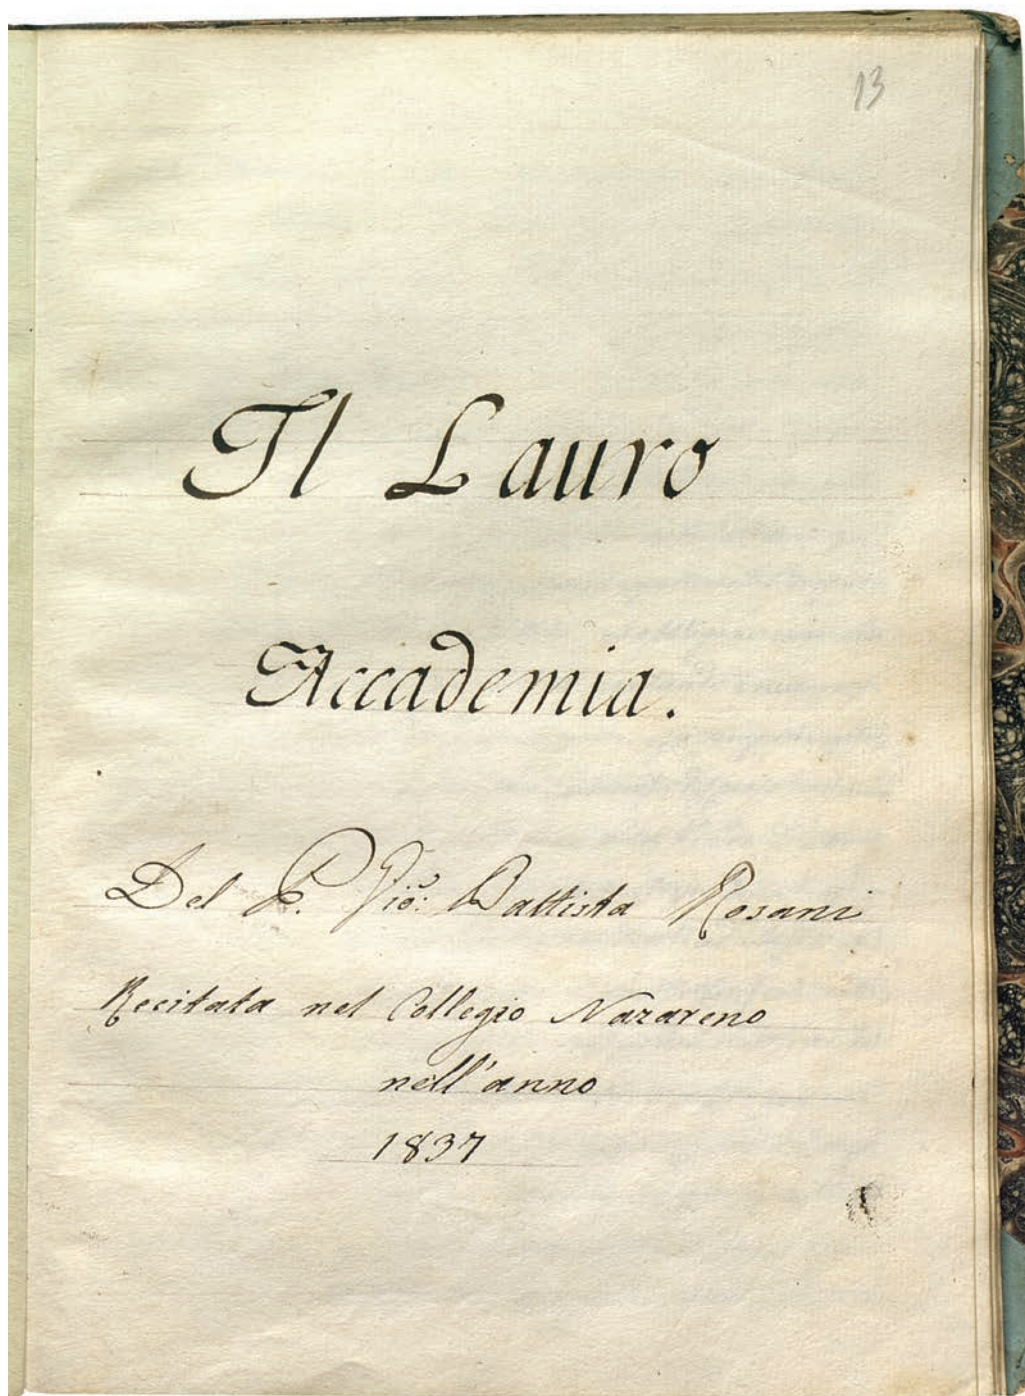 13
Il Lauro
Accademia.
Del P. Gio: Battista Rosani
Recitata nel Collegio Nazareno
nell'anno
1837